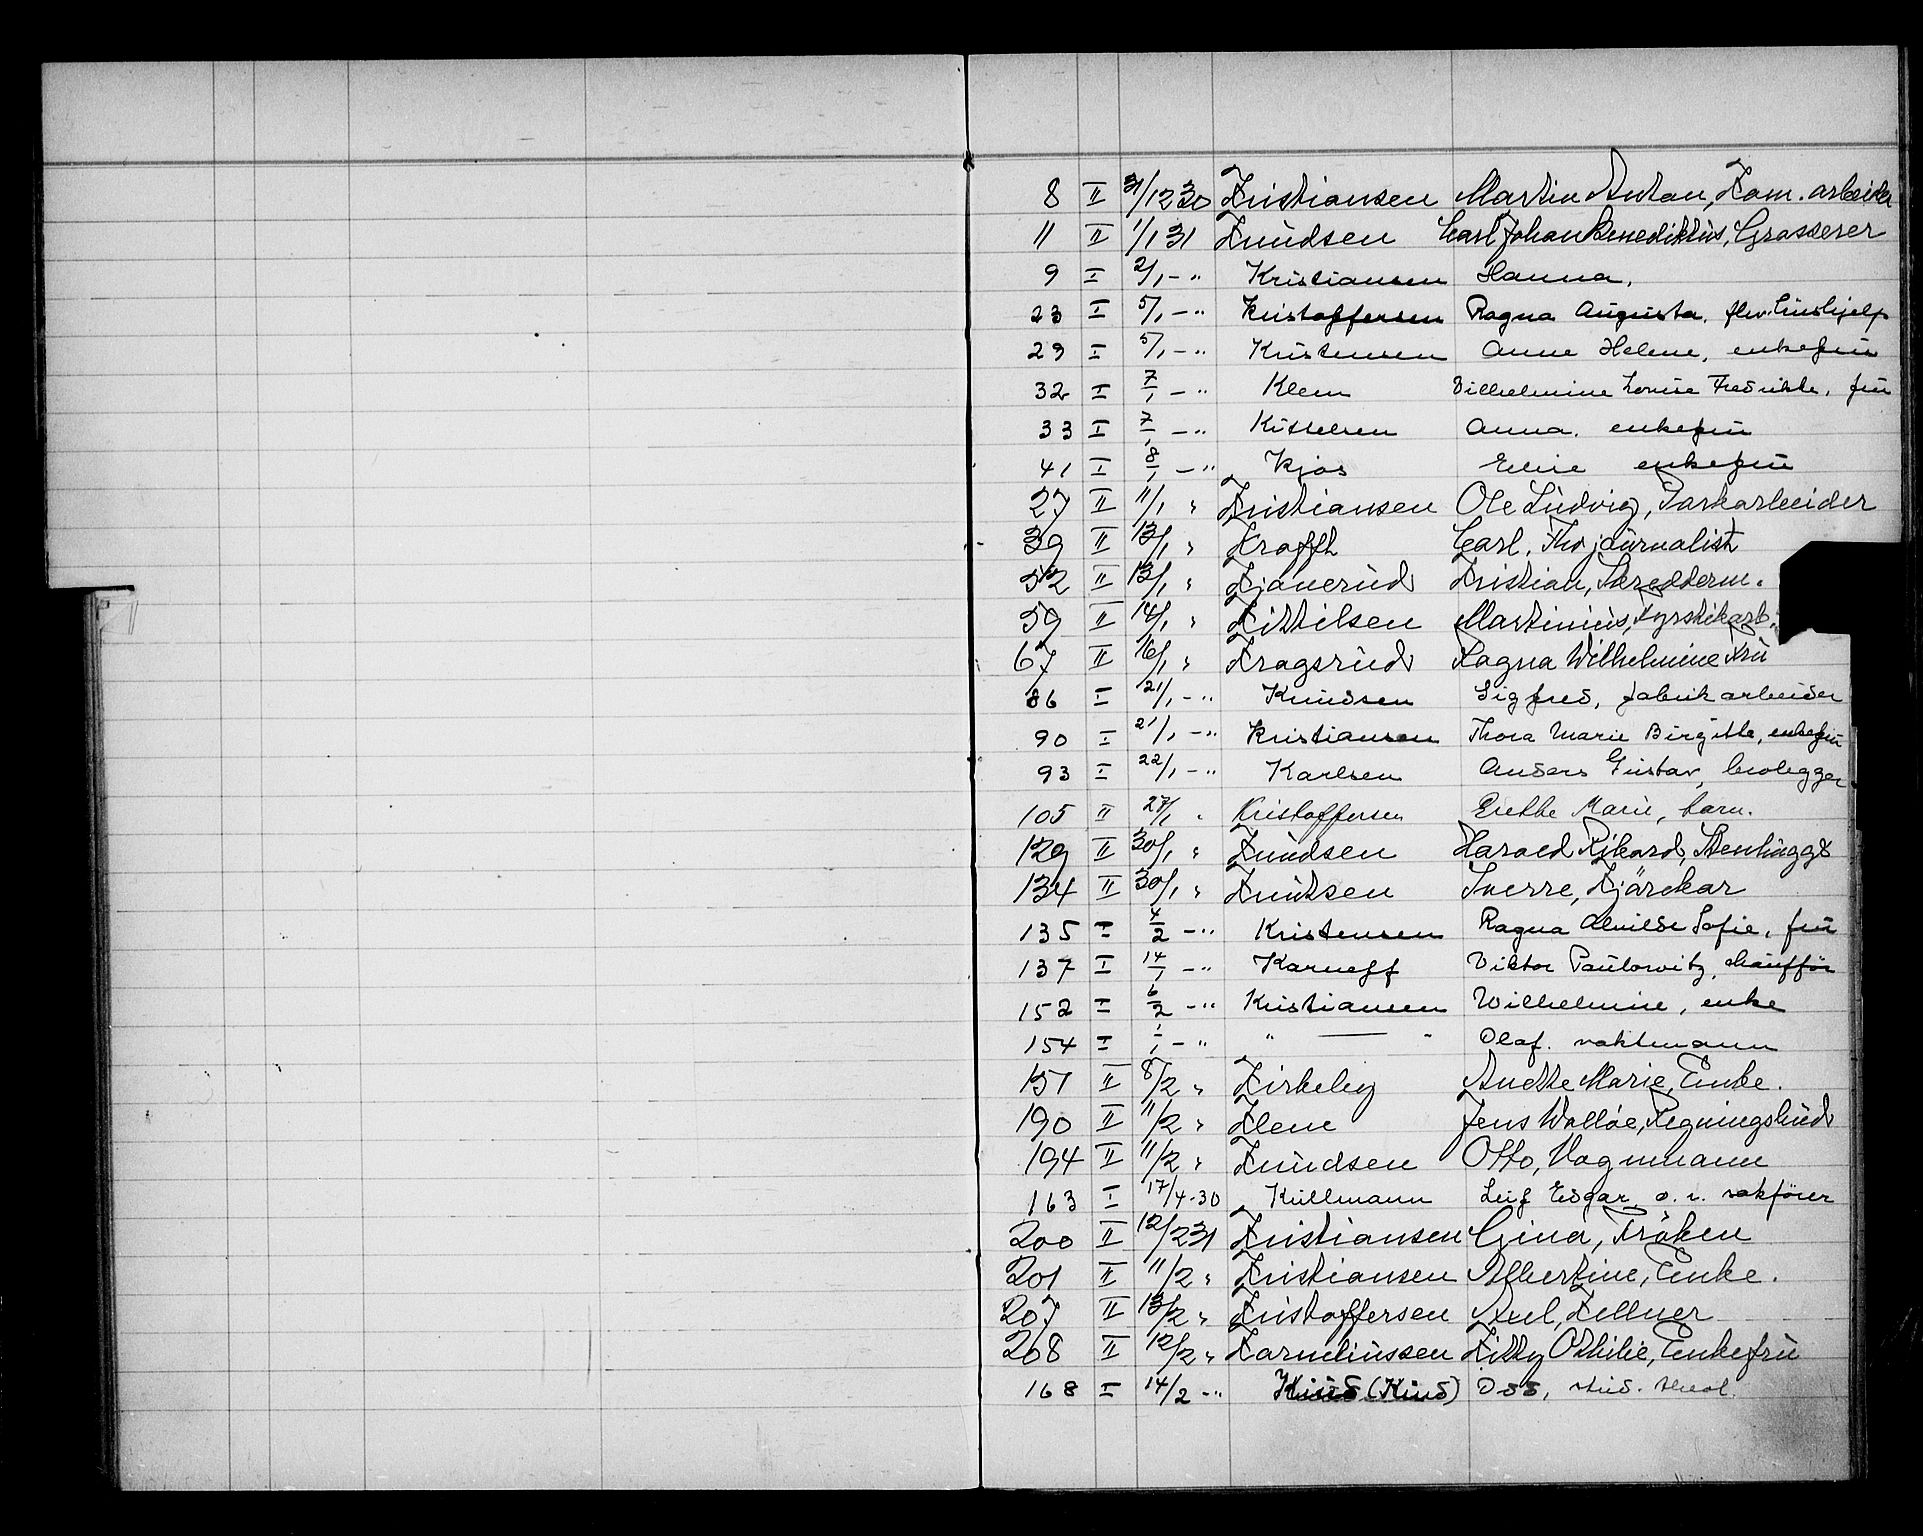 8 II 31/12 30 Kristiansen Martin Anton, Kom. arbeider
11 II 1/1 31 Knudsen Carl Johan Benediktus, Grosserer
9 I 2/1 - " Kristiansen Hanna,
23 I 5/1 - " Kristoffersen Ragna Augusta, fhv. hushjelp
29 I 5/1 - " Kristensen Anne Helene, enkefru
32 I 7/1 - " Klem Vilhelmine Lovise Fredrikke, fru
33 I 7/1 - " Kittelsen Anna, enkefru
41 I 8/1 - " Kjos Elise enkefru
27 II 11/1 " Kristiansen Ole Ludvig, Parkarbeider
39 II 13/1 " Krafft Carl, Thv journalist
52 II 13/1 " Kjanerud Kristian, Skredderm.
59 II 14/1 " Kittilsen Martinius, Fyrstikarb.
67 II 16/1 " Kragsrud Ragna Wilhelmine Fru
86 I 21/1 - " Knudsen Sigfred, fabrikarbeider
90 I 21/1 - " Kristiansen Thora Marie Birgitte, enkefru
93 I 22/1 - " Karlsen Anders Gustav, brolegger
105 II 27/1 " Kristoffersen Grethe Marie, barn.
129 II 30/1 " Knudsen Harald Rikard, Stenhugger
134 II 30/1 " Knutsen Sverre, Kjørekar
135 I 4/2 - " Kristensen Ragna Alvilde Sofie, fru
137 I 14/1 - " Karneff Viktor Paulowitz, chauffør
152 I 6/2 - " Kristiansen Wilhelmine, enke
154 I 1/1 - " " — " Olaf. vaktmann
151 II 8/2 " Kirkeby Anette Marie, Enke.
190 II 11/2 " Klem Jens Walløe, Regningsbud
194 II 11/2 " Knudsen Otto, Vognmann
163 I 17/4-30 Kullmann Leif Edgar, o.r. sakfører
200 II 12/2 31 Kristiansen Gina, Frøken
201 II 11/2 " Kristiansen Albertine, Enke.
207 II 13/2 " Kristoffersen Axel, Kellner
208 II 12/2 " Korneliussen Kitty Othilie, Enkefru
168 I 14/2 - " (Kind) Odd, stud. theol.